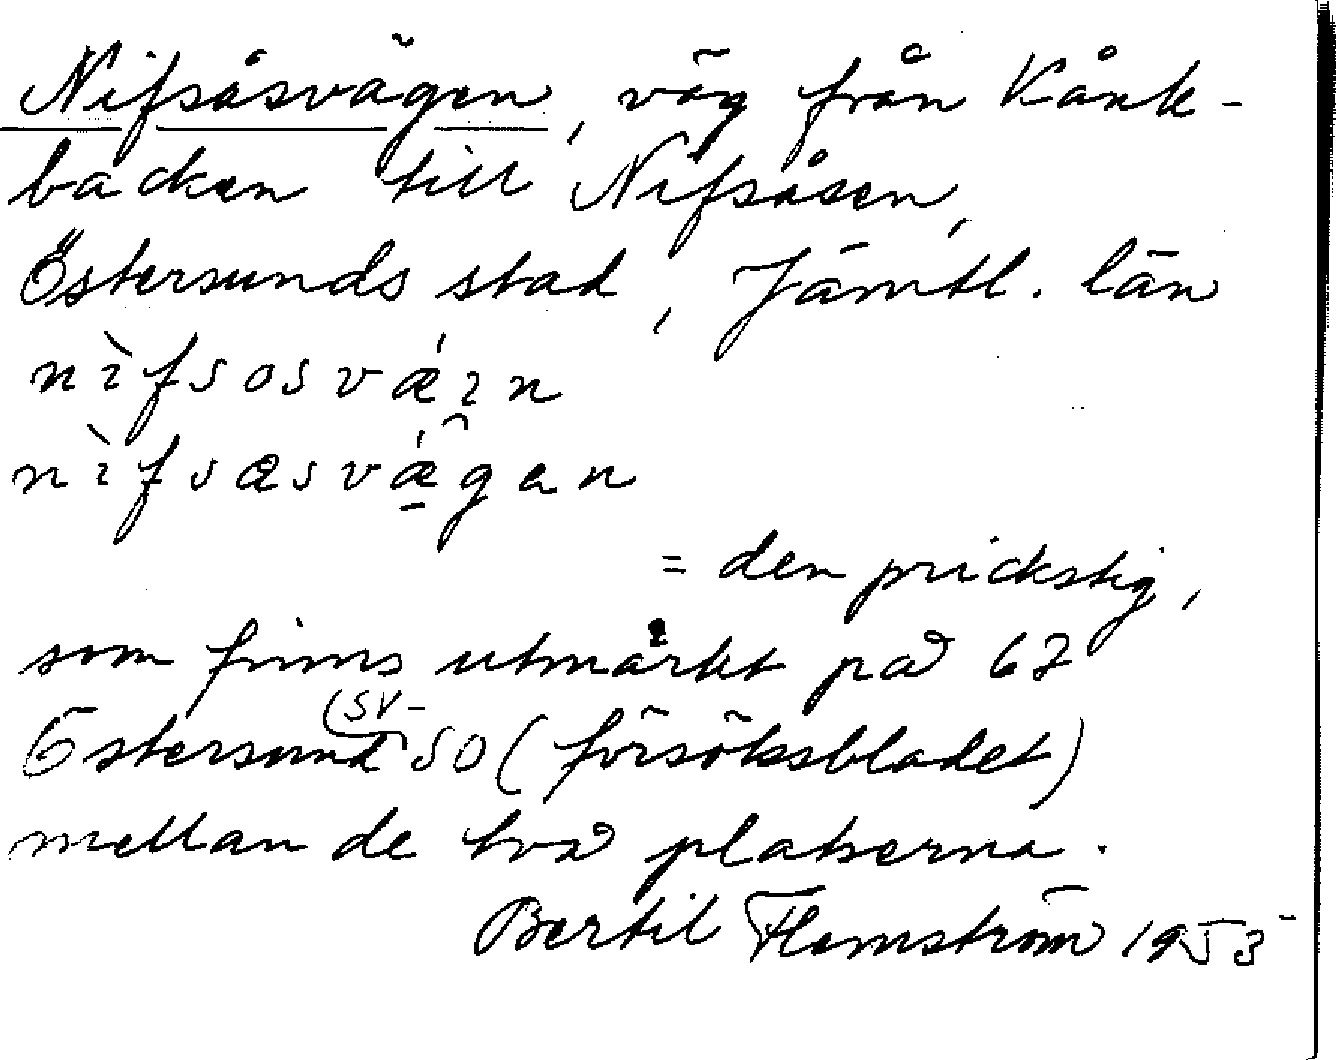 Nifsåsvägen, väg från Kånk-
backen till Nifsåsen,
Östersunds stad, Jämtl. län
nìfsosvǽın
nìfsæsvǽgan
= den prickstig,
som finns utmärkt på 62
(SV-
Östersund SO (försöksbladet)
mellan de två platserna.
Bertil Flemström 1953